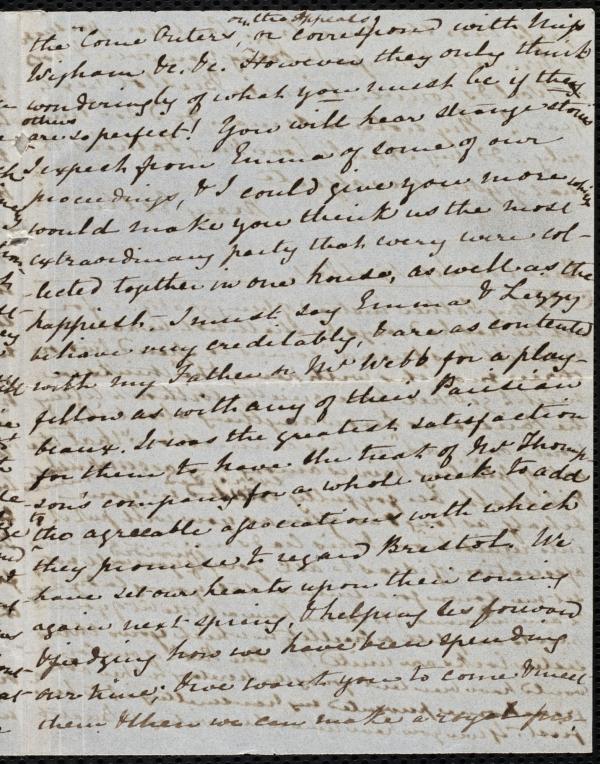 on the Appeals
the "Come Outers", or correspond with Miss
Wigham &c, &c. However they only think
wonderingly of what you must be if they
others
are so perfect! You will hear strange stories
I expect from Emma of some of our
proceedings, & I could give you more which
would make you think us the most
extraordinary party that every were col-
-lected together in one house, as well as the
happiest. I must say Emma & Lizzy
behave very creditably, & are as contented
with my Father or Mr Webb for a play-
fellow as with any of their Parisian
beaux. It was the greatest satisfaction
for them to have the treat of Mr Thomp-
son's company for a whole week to add
to
the agreeable associations with which
they promise to regard Bristol. We
have set our hearts upon their coming
again next spring, & helping us forward
& judging how we have been spending
our time; & we want you to come & meet
them & then we can make a